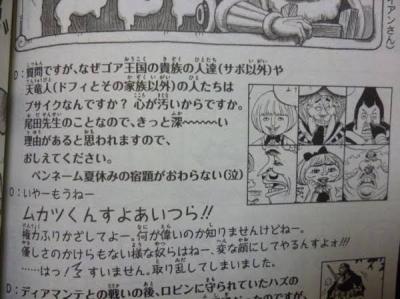 イアンさん)
D:質問ですが、なぜゴア王国の貴族の人達(サボ以外)や
天竜人(ドフィとその家族以外)の人たちは
ブサイクなんですか? 心が汚いからですか。
尾田先生のことなので、きっと深〜〜〜い
理由があると思われますので、
おしえてください。
ペンネーム夏休みの宿題がおわらない(泣)
O:いやーもうねー
ムカツくんすよあいつら!!
権力ふりかざしてよー。何が偉いのか知りませんけどねー。
優しさのかけらもない様な奴らはねー、変な顔にしてやるんすよォ!!!
……はっ! すいません。取り乱してしまいました。
D:ディアマンテとの戦いの後、ロビンに守られていたハズの